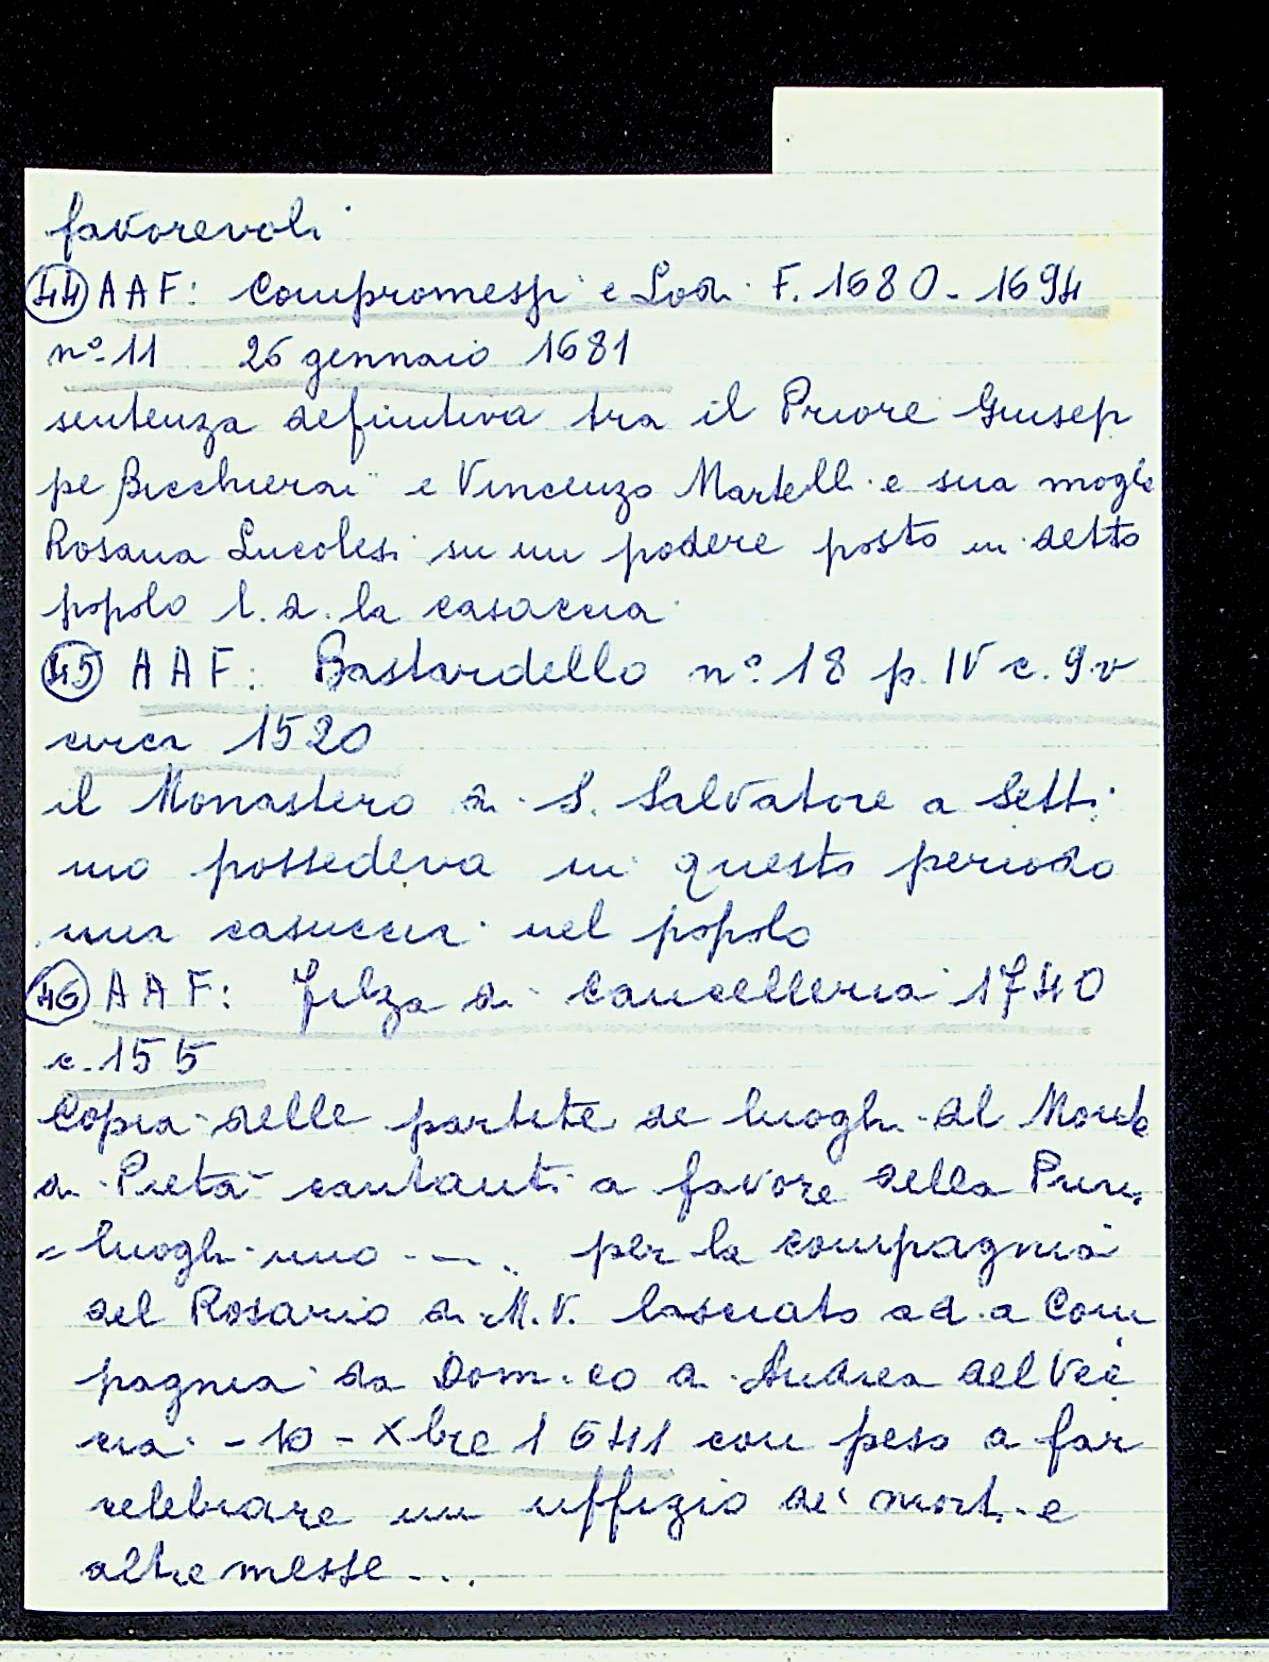 favorevoli
44 AAF: Compromessi e Lodi F. 1680-1694
nº 11 26 gennaio 1681
sentenza definitiva tra il Priore Giusep
pe Bicchierai e Vincenzo Martelli e sua mogle
Rosana Lucolesi su un podere posto in detto
popolo l.d. la casaccia
45 AAF: Bastardello nº 18 p. IV c. 9.v
circa 1520
il Monastero di S. Salvatore a Setti
mo possedeva in questo periodo
una casuccia nel popolo
46 AAF: Filza di Cancelleria 1740
c. 155
Copia delle partite de luoghi del Monte
di Pietà cantanti a favore della
= luoghi uno - - . per la compagnia
del Rosario di M.V. lasciato ad.a Com
pagnia da Dom.co d. Andrea del Vec
cia - 10 - Xbre 1641 con peso a far
celebrare un uffizio de' morti e
altre messe ...